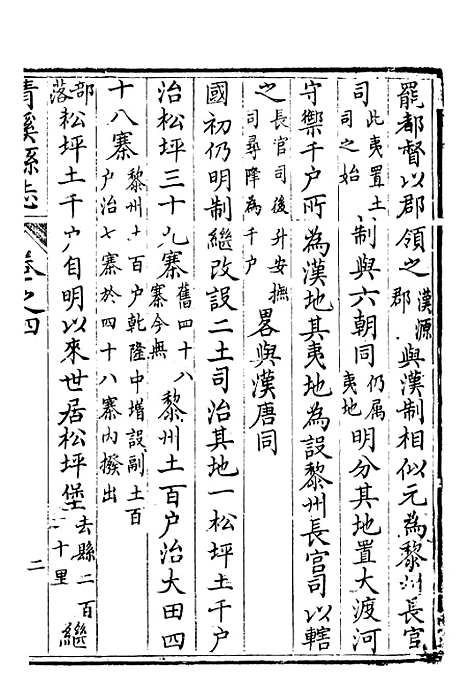 罷都督以郡領之漢源郡與漢制相似元為黎州長官
司此夷置土司之始制與六朝同仍属夷地明分其地置大渡河
守禦千户所為漢地其夷地為設黎州長官司以轄
之長官司後升安撫司尋降為千户畧與漢唐同
國初仍明制繼改設二土司治其地一松坪土千户
治松坪三十九寨舊四十八寨今無黎州土百户治大田四
十八寨黎州土百户乾隆中增設副土百户治七寨於四十八寨內撥出
部落松坪土千户自明以來世居松坪堡去縣二百一十里繼
清溪縣志 卷之四 二